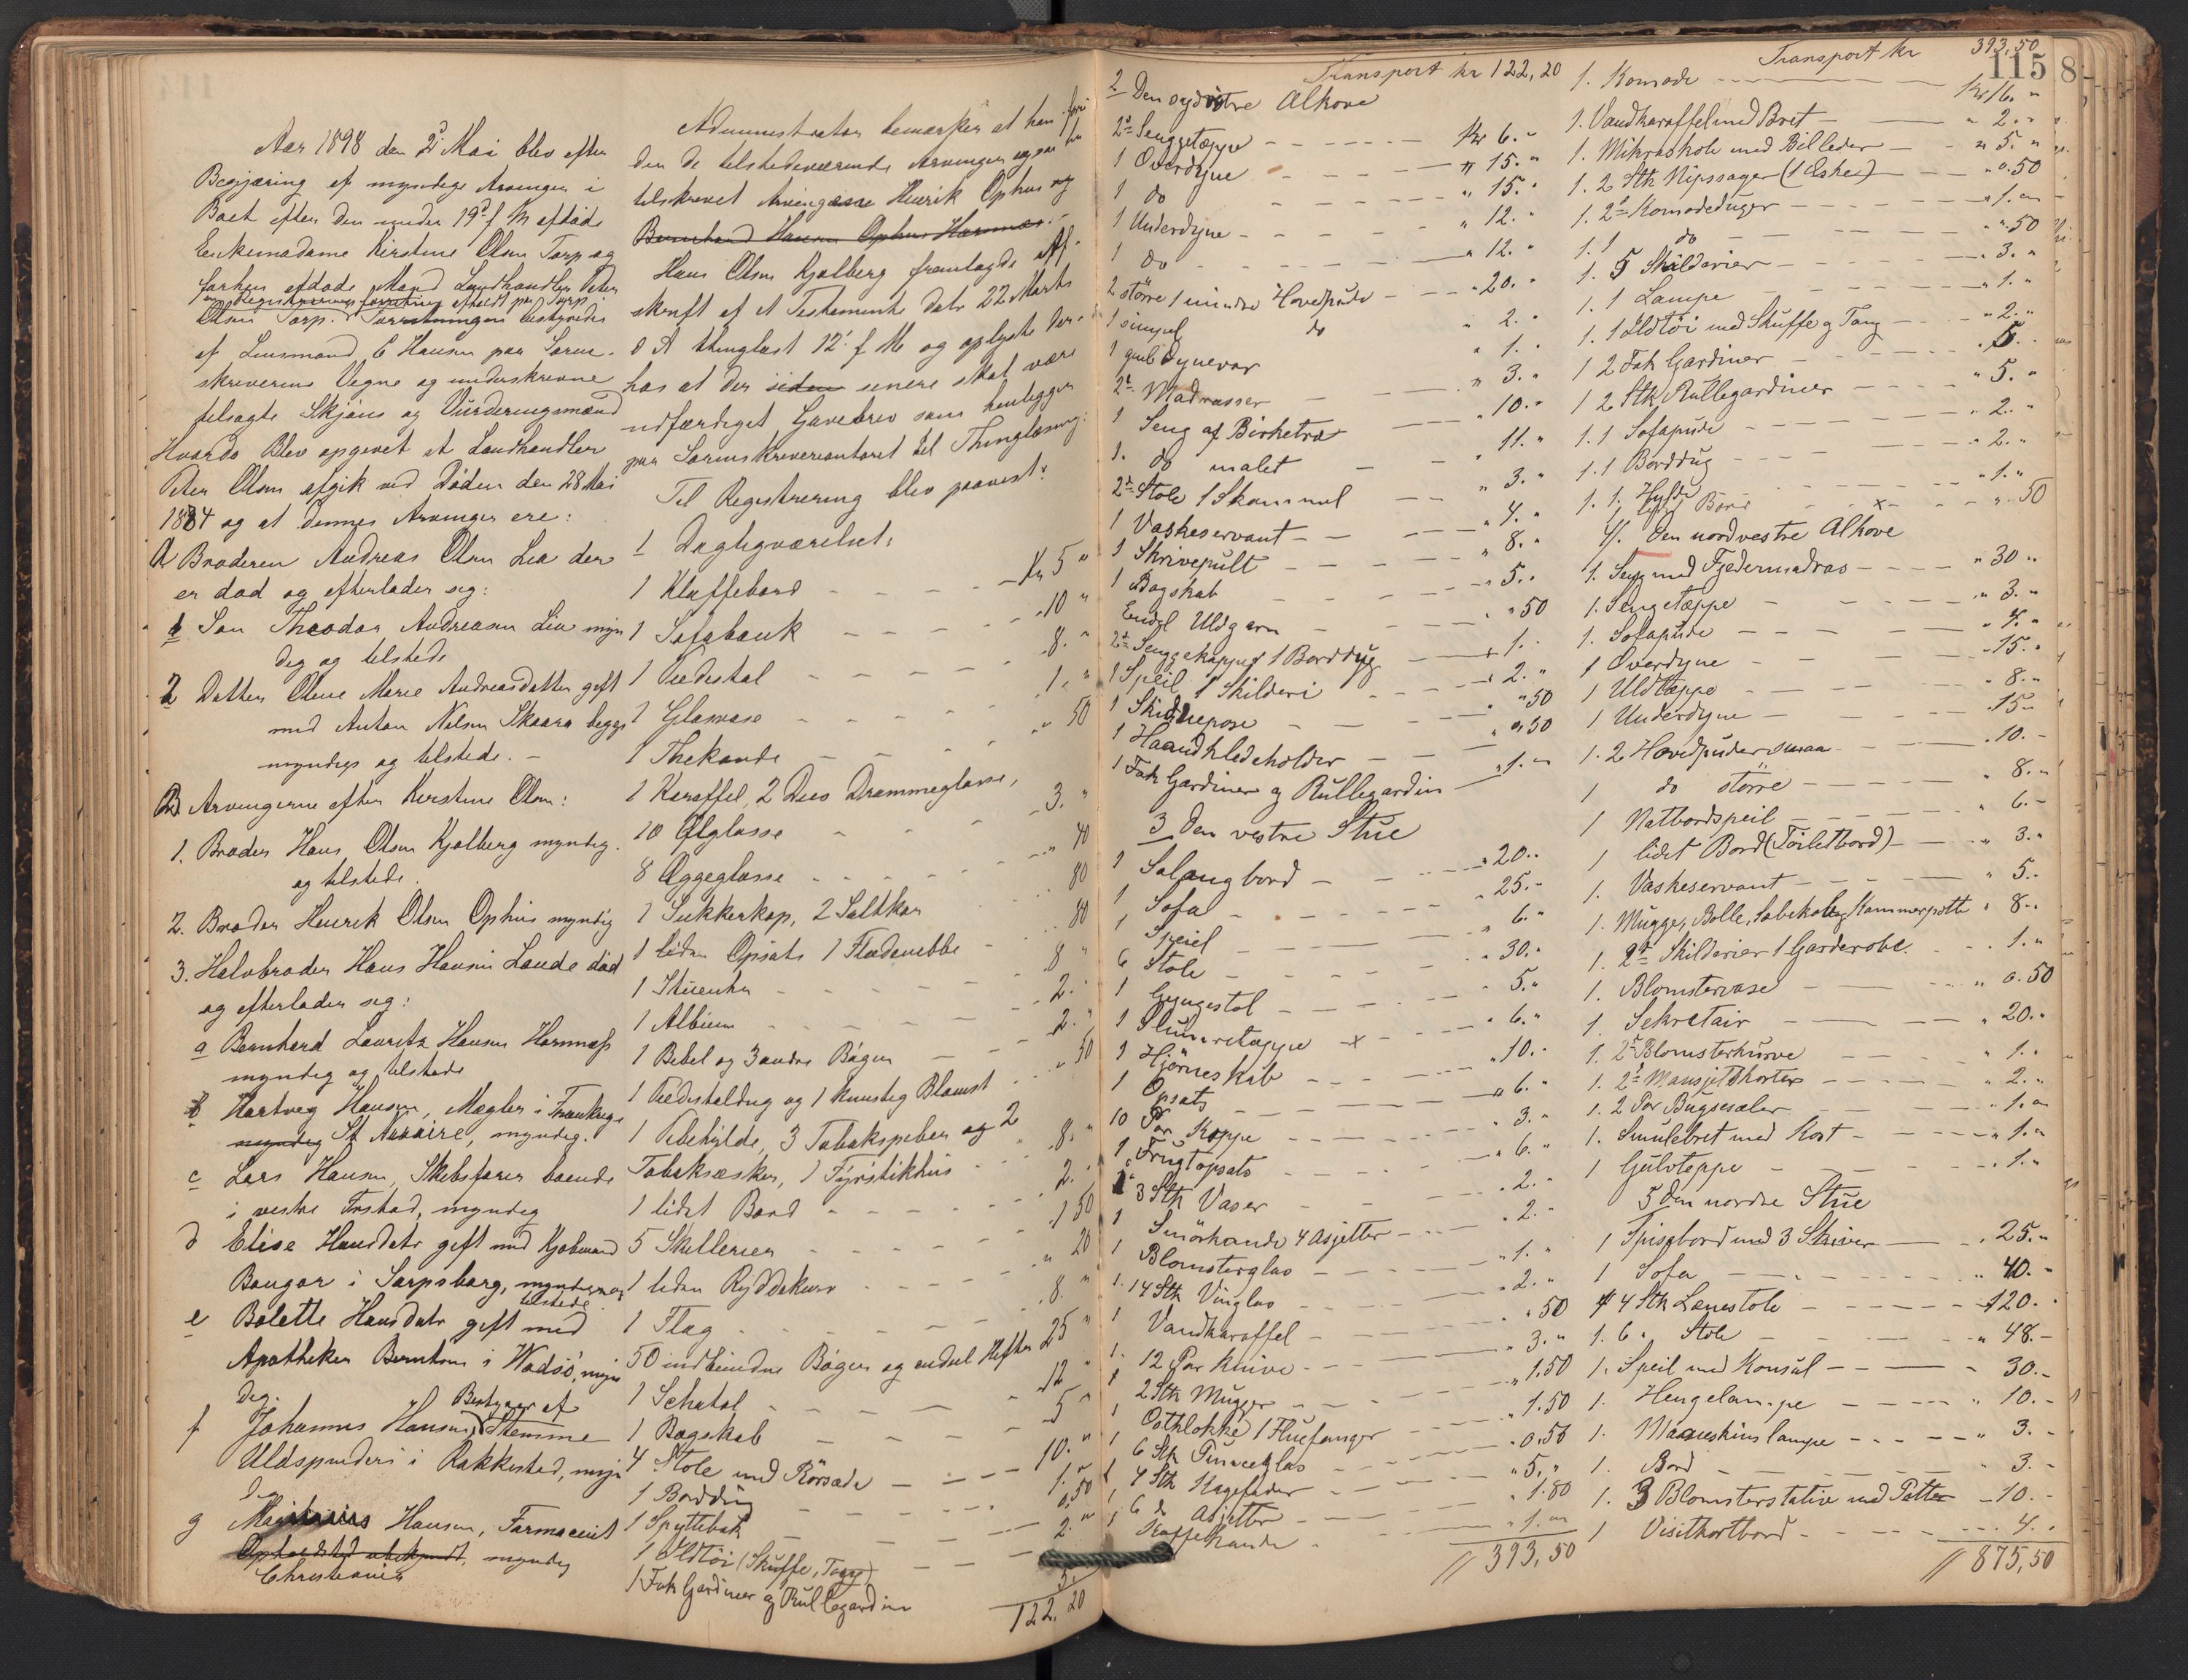 Aar 1898 den 2d Mai blev efter
Begjæring af myndige Arvinger i
Boet efter den under 19d f M afdøde
Enkemadame Kirstine Olsen Torp og
forhen afdøde Mand Landhandler Peter
Registreringsforretning afholdt paa Torp
Olsen Torp. Forretningen bestyredes
af Lensmand C Hansen paa Soren-
skriverens Vegne og underskrevne
tilsagte Skjøns og Vurderingsmænd
Hvorda Blev opgivet at Landhandler
Peter Olsen afgik ved Døden den 28 Mai
1884 og at dennes Arvinger ere:
A Broderen Andreas Olsen Lia der
er død og efterlader sig:
1 Søn Theodor Andreasen Lia myn
dig og tilstede
2 Datter Oline Marie Andreasdatter gift
med Anton Nilsen Skaara begge
myndige og tilstede. -
B Arvingerne efter Kirstine Olsen:
1. Broder Hans Olsen Kjølberg myndig.
og tilstede.
2. Broder Henrik Olsen Ophus myndig
3. Halvbroder Hans Hansen Lande død
og efterlader sig:
a Bernhard Lauritz Hansen Hornnæs
myndig og tilstede
b Hartvig Hansen, Mægler i Frankrige
myndig St Nazaire, myndig.
c Lars Hansen, Skibsfører boende
i vestre Fredrikstad, myndig
d Elise Hansdatr gift med Kjøbmand
Bangor i Sarpsborg, myndig og
tilstede
e Bolette Hansdatr gift med
Apotheker Berntsen i Wadsø, myn
dig.
Bestyrer af
f Johannes Hansen, Stemme
Uldspinderi i Rakkestad, myn
dig
g Hansen, Farmaceut
Opholdsted ubekjendt, myndig
Christiania
Administrator bemærker at han foru
den de tilstedeværende Arvinger ogsaa har
tilskrevet Arvingerne Henrik Ophus og
Bernhard Hansen Ophus Hornnæs. -
Hans Olsen Kjølberg fremlagde Af-
skrift af et Testamente datr 22 Marts
d A thinglæst 12' f M og oplyste der-
hos at der siden senere skal være
udfærdiget Gavebrev som henligger
paa Sorenskrivercontoret til Thinglæsning.
Til Registrering blev paavist:
1 Dagligværelset:
1 Klaffebord - - - Kr 5 "
1 Sofabænk - - - " 10 "
1 Piedestal - - - " 8. "
1 Glasvase - - - 1. "
1 Thekande - - - " 50
1 Karaffel, 2 Dusin Drammeglasse,
10 Ølglasse - - - 3. "
8 Æggeglasse - - - " 40
1 Sukkerkop, 2 Saltkar " 80
1 liden Opsats 1 Flødenebbe " 80
1 Stueuhr - - - 8 "
1 Album - - - 2. "
1 Bibel og 3 andre Bøger 2. "
1 Piedestaldug og 1 kunstig Blomst " 50
1 Pibehylde, 3 Tobakspiber og 2
Tobaksæsker, 1 Fyrstikhus 8. "
1 lidet Bord - - - 2. "
5 Skillerier - - - 1 50
1 liden Ryddekurv " 20
1 Flag - - - 8. "
50 indbundne Bøger og endel Hefter 25 "
1 Schatol - - - 12 "
1 Bogskab - - - 5 "
4 Stole med Rørsæde - 10. "
1 Borddug - - - 1. "
1 Spyttebak - - - 0,50
1 Ildtøi (Skuffe, Tang) 2. "
1 Fak Gardiner og Rullegardin 3.
122,20
Transport kr 122,20
2 Den sydøstre Alkove
2d Sengetæppe - - - Kr 6. "
1 Overdyne - - - " 15. "
1 do - - - " 15. "
1 Underdyne - - - " 12. "
1 do - - - " 12. "
2 større 1 mindre Hovedpude - " 20. "
1 simpel do " 2. "
1 gul Dynevar " 1. "
2d Madrasser - - " 3. "
1 Seng af Birketræ " 10. "
1. do malet - - " 11. "
2d Stole 1 Skammel " 3. "
1 Vaskeservant - - " 4. "
1 Skrivepult - - - " 8. "
1 Bogskab - - - " 5. "
Endel Uldgarn - - " 50
2d Senggekapper 1 Borddug " 1. "
1 Speil 1 Skilderi - - " 2. "
1 Skidnepose - - " 50
1 Haandklædeholder - " 0,50
1 Fak Gardiner og Rullegardin " 1. "
3 Den vestre Stue
1 Salongbord - - " 20. "
1 Sofa - - - " 25. "
1 Speiel - - - " 6. "
6 Stole - - - " 30. "
1 Gyngestol - - - " 5. "
1 Slumretæppe x " 6. "
1 Hjørneskab - - " 10. "
1 Opsats - - - " 6. "
10 Par Koppe - - " 3. "
1 Frugtopsats - - " 6. "
1 3 Stk Vaser - - " 2. "
1 Smørkande 4 Asjetter " 2. "
1 Blomsterglas - - " 1. "
1. 14 Stk Vinglas - " 2. "
1 Vandkaraffel - - " 50
1. 12 Par Knive - - " 3. "
1 2 Stk Mugger - " 1.50
1 Ostklokke 1 Fluefanger " 1.50
1 6 Stk Punceglas - " 0.50
1 4 Stk Kagefader - " 5. "
1 6 do Asjetter - - " 1.80
Kaffekande - " 1. "
// 393,50
Transport kr 393,50
115
8
1. Komode - - - Kr 16. "
1. Vandkaraffel med Bret - " 2. "
1. Mikroskob med Billeder - " 5. "
1. 2 Stk Nipssager (1 Eske) - " 0.50
1. 2d Komodeduger - - " 1. "
1. 1 do - - " 50
1. 5 Skilderier - - " 3. "
1. 1 Lampe - - " 1. "
1. 1 Ildtøi med Skuffe og Tang - " 2. "
1 2 Fak Gardiner - - " 5. "
1 2 Stk Rullegardiner - " 5. "
1. 1 Sofapude - - " 2. "
1. 1 Borddug - - " 2. "
1. 1. Hylde - - " 1. "
1 lidet Bord x - " 50
4/. Den nordvestre Alkove
1. Seng med Fjedermadras - - " 30 "
1. Sengetæppe - - " 3. "
1. Sofapude - - " 4. "
1 Overdyne - - " 15. "
1 Uldtæppe - - " 8. "
1 Underdyne - - " 15 "
1. 2 Hovedpuder smaa - " 10. -
1 do større - - " 8. "
1 Natbordspeil - - " 6. -
1 lidet Bord (Toiletbord) - " 3. "
1. Vaskeservant - - " 5. "
1. Mugge, Bolle, Sæbekop, Kammerpotte " 8. "
1. 2d Skilderier 1 Garderobe. " 1. "
1. Blomstervase - - " 0.50
1. Sekretair - - " 20. "
1. 2d Blomsterkurve - " 1. "
1. 2d Mansjetskorter - " 2. "
1. 2 Par Bugseseler - " 1. "
1. Smulebret med Kost - " 1. "
1 Gulvtæppe - - " 1. "
5 Den nordre Stue
1 Spisebord med 3 Skiver - " 25. "
1 Sofa - - " 40. "
4 Stk Lænestole - - 120. "
1. 6 " Stole - - " 48. -
1. Speil med Konsul - - 30. -
1. Hengelampe - - " 10. -
1. Maaneskinslampe - - " 3. -
1. Bord - - " 3. -
1. 3 Blomsterstative med Potter - 10. -
1 Visitkortbord - - 4. "
// 875,50